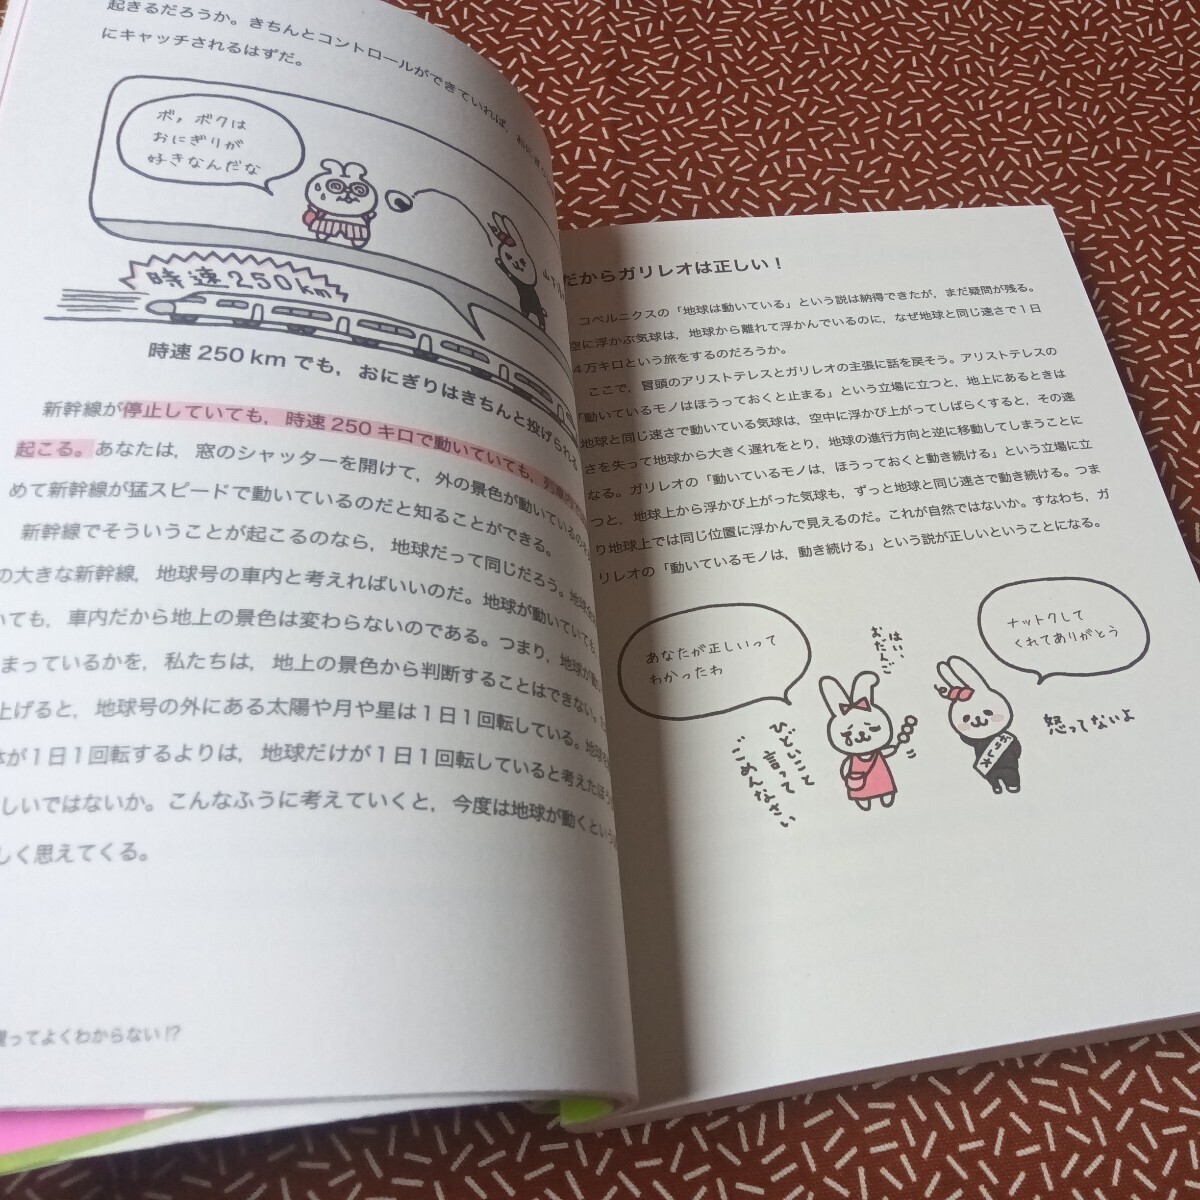 起きるだろうか。きちんとコントロールができていれば，
にキャッチされるはずだ。
ボ，ボクは
おにぎりが
好きなんだな
時速250km
時速 250 km でも，おにぎりはきちんと投げられる
新幹線が停止していても，時速 250 キロで動いていても，列車の
起こる。あなたは，窓のシャッターを開けて，外の景色が動いているのを
めて新幹線が猛スピードで動いているのだと知ることができる。
新幹線でそういうことが起こるのなら，地球だって同じだろう。
の大きな新幹線，地球号の車内と考えればいいのだ。地球が動いていても
いても，車内だから地上の景色は変わらないのである。つまり，地球が
まっているかを，私たちは，地上の景色から判断することはできない。
上げると，地球号の外にある太陽や月や星は１日１回転している。
体が１日１回転するよりは，地球だけが１日１回転していると考えたほう
しいではないか。こんなふうに考えていくと，今度は地球が動くという
しく思えてくる。
ってよくわからない!?
だからガリレオは正しい！
コペルニクスの「地球は動いている」という説は納得できたが，まだ疑問が残る。
空に浮かぶ気球は，地球から離れて浮かんでいるのに，なぜ地球と同じ速さで１日
４万キロという旅をするのだろうか。
ここで，冒頭のアリストテレスとガリレオの主張に話を戻そう。アリストテレスの
「動いているモノはほうっておくと止まる」という立場に立つと，地上にあるときは
地球と同じ速さで動いている気球は，空中に浮かび上がってしばらくすると，その速
さを失って地球から大きく遅れをとり，地球の進行方向と逆に移動してしまうことに
なる。ガリレオの「動いているモノは，ほうっておくと動き続ける」という立場に立
つと，地球上から浮かび上がった気球も，ずっと地球と同じ速さで動き続ける。つま
り地球上では同じ位置に浮かんで見えるのだ。これが自然ではないか。すなわち，ガ
リレオの「動いているモノは，動き続ける」という説が正しいということになる。
あなたが正しいって
わかったわ
ひどいこと
言って
ごめんなさい
はい、
おだんご
ナットクして
くれてありがとう
怒ってないよ